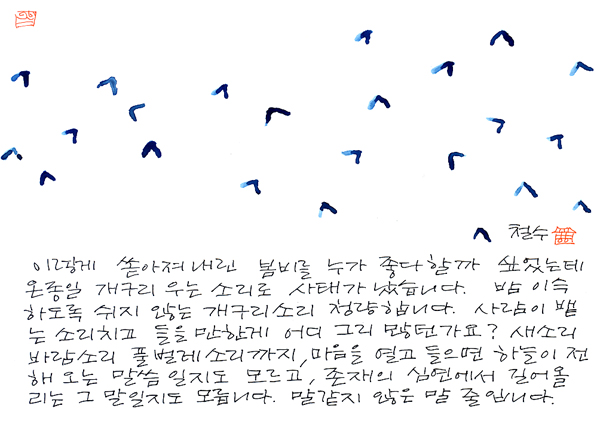 철수
이렇게 쏟아져내린 봄비를 누가 좋다할까 싶었는데
온종일 개구리 우는 소리로 사태가 났습니다. 밤 이슥
하도록 쉬지 않는 개구리소리 청량합니다. 사람이 뱉
는 소리치고 들을만한게 어디 그리 많던가요? 새소리
바람소리 풀벌레소리까지, 마음을 열고 들으면 하늘이 전
해 오는 말씀일지도 모르고, 존재의 심연에서 길어올
리는 그 말일지도 모릅니다. 말같지 않은 말 줄입니다.